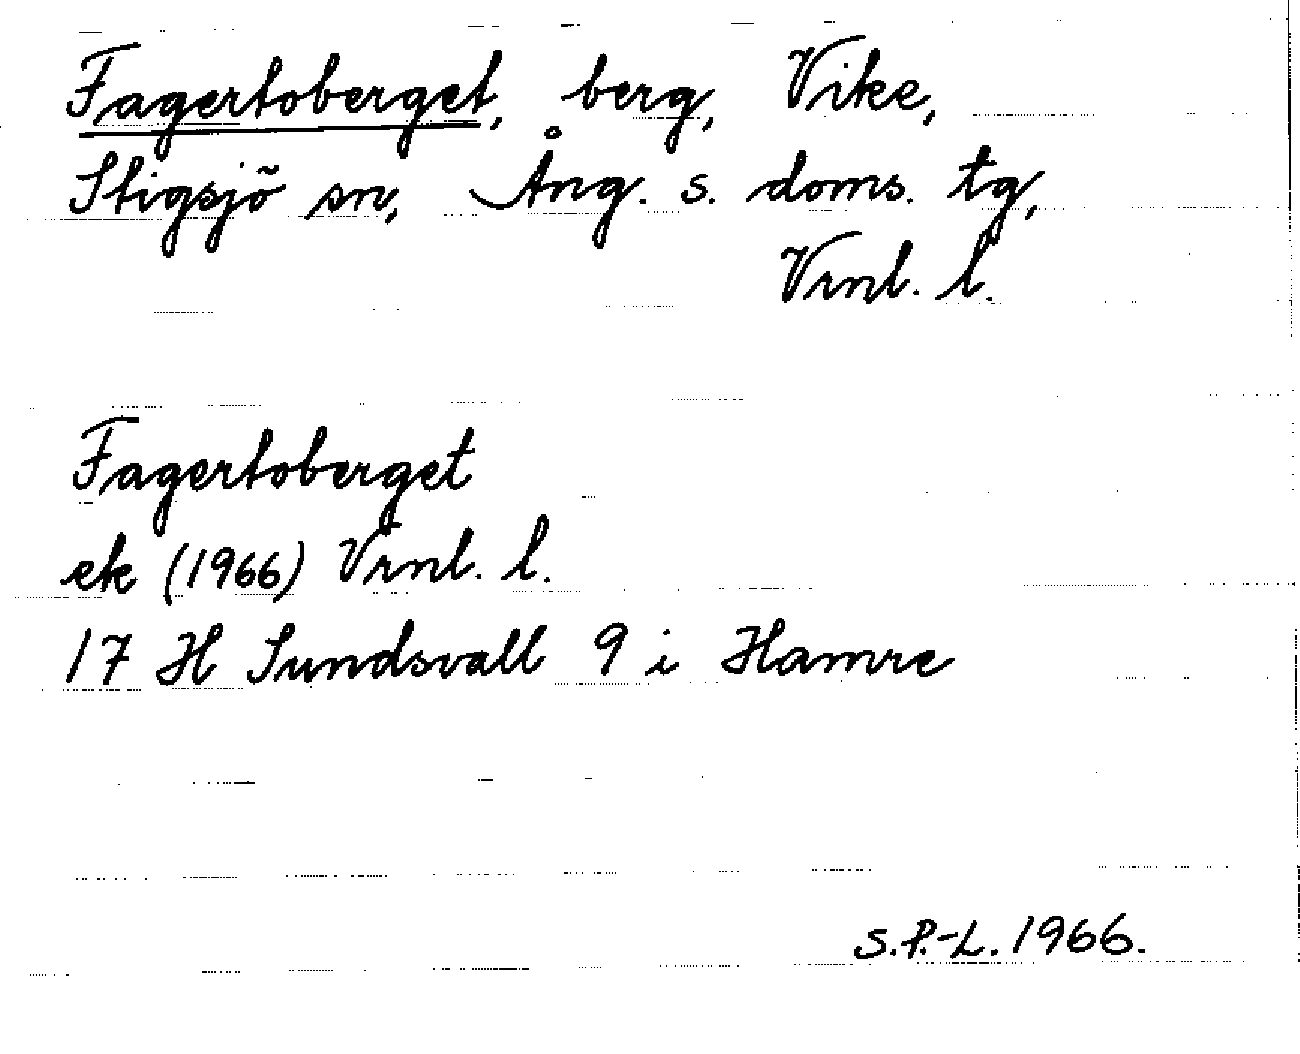 Fagertoberget, berg, Vike,
Stigsjö sn, Ång. s. doms. tg,
Vrnl. l.
Fagertoberget
ek (1966) Vrnl. l.
17 H Sundsvall 9 i Hamre
S.P.-L. 1966.